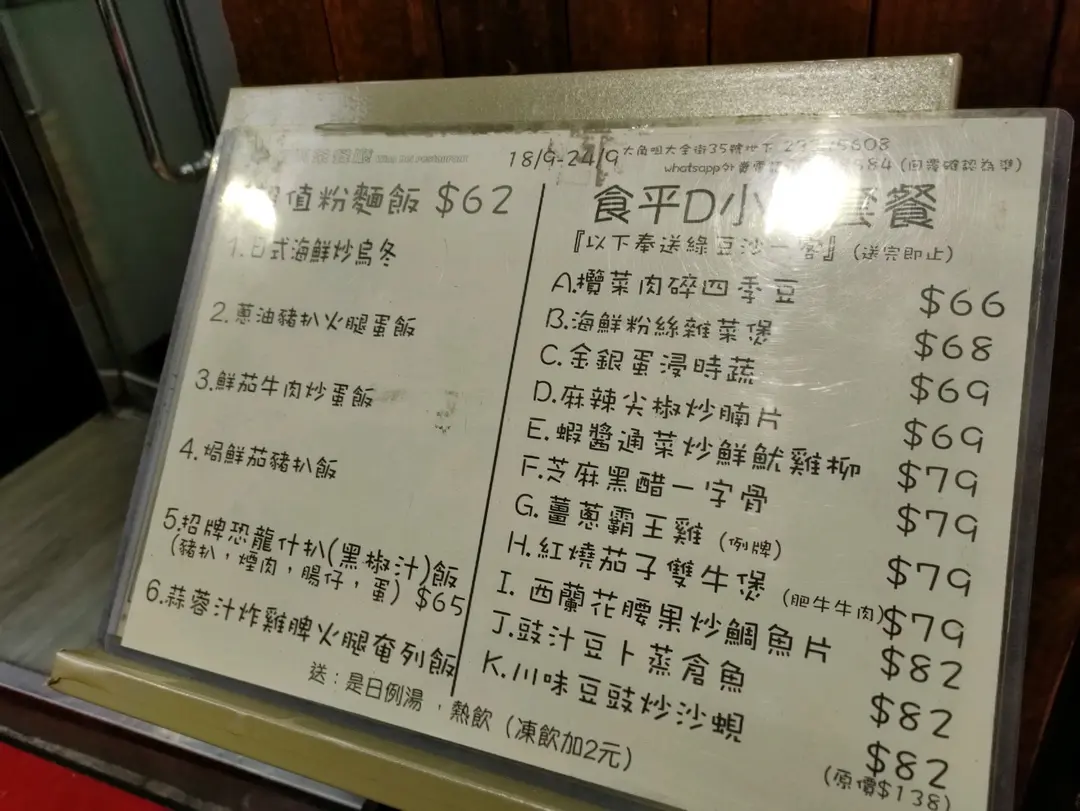 18/9-24/9
大角咀大全街35號地下
whatsapp外賣 (回覆確認為準)
值粉麵飯 $62
1.日式海鮮炒烏冬
2.蔥油豬扒火腿蛋飯
3.鮮茄牛肉炒蛋飯
4.焗鮮茄豬扒飯
5.招牌恐龍什扒(黑椒汁)飯
(豬扒，煙肉，腸仔，蛋) $65
6.蒜蓉汁炸雞脾火腿奄列飯
送：是日例湯，熱飲（凍飲加2元）
食平D小 套餐
『以下奉送綠豆沙一客』（送完即止）
A.欖菜肉碎四季豆 $66
B.海鮮粉絲雜菜煲 $68
C.金銀蛋浸時蔬 $69
D.麻辣尖椒炒腩片 $69
E.蝦醬通菜炒鮮魷雞柳 $79
F.芝麻黑醋一字骨 $79
G.薑蔥霸王雞（例牌） $79
H.紅燒茄子雙牛煲（肥牛牛肉） $79
I.西蘭花腰果炒鯛魚片 $82
J.豉汁豆卜蒸倉魚 $82
K.川味豆豉炒沙蜆 $82
（原價$138）